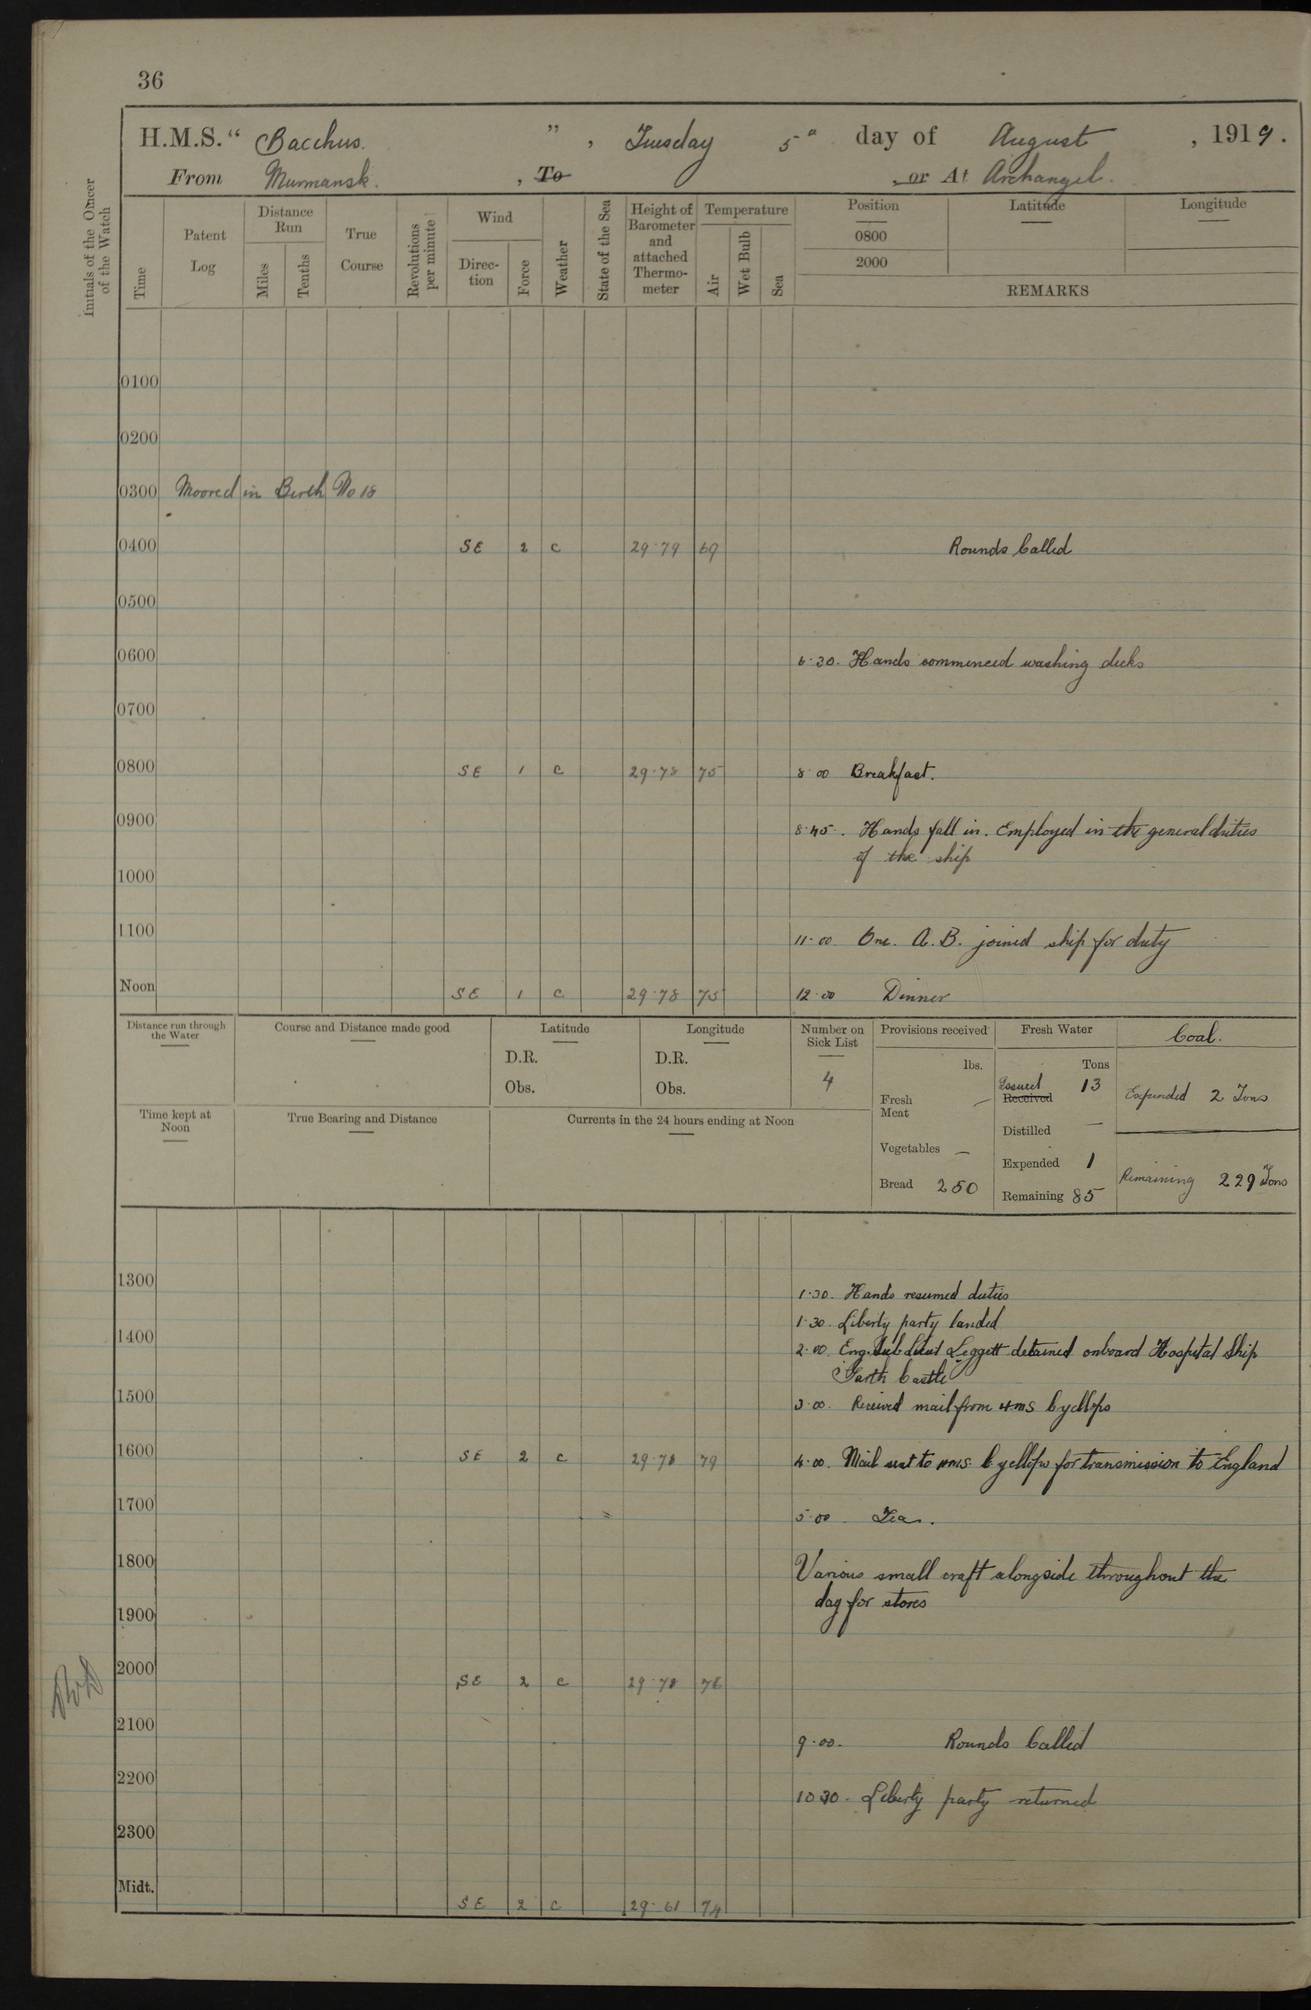 36
H.M.S. “ Bacchus. ” , Tuesday 5" day of August , 1919.
From Murmansk. , To , or At Archangel.
Initials of the Officer of the Watch
Time
Patent Log
Distance Run
Miles
Tenths
True Course
Revolutions per minute
Wind
Direc-tion
Force
Weather
State of the Sea
Height of Barometer and attached Thermo-meter
Temperature
Air
Wet Bulb
Sea
Position Latitude Longitude
0800
2000
REMARKS
0100
0200
0300 Moored in Berth No 18
0400 SE 2 c 29.79 69 Rounds Called
0500
0600 6.30. Hands commenced washing decks
0700
0800 SE 1 c 29.78 75 8.00 Breakfast.
0900 8.45. Hands fall in. Employed in the general duties
of the ship
1000
1100 11.00 One. A.B. joined ship for duty
Noon SE 1 c 29.78 75 12.00 Dinner
Distance run through the Water
Course and Distance made good
Latitude
D.R.
Obs.
Longitude
D.R.
Obs.
Number on Sick List
4
Provisions received
lbs.
Fresh Meat —
Vegetables —
Bread 250
Fresh Water
Tons
Issued 13
Received
Distilled —
Expended 1
Remaining 85
Coal.
Expended 2 Tons
Remaining 229 Tons
Time kept at Noon
True Bearing and Distance
Currents in the 24 hours ending at Noon
1300 1.30. Hands resumed duties
1.30. Liberty party landed
1400 2.00. Eng. Sub Lieut Leggett detained onboard Hospital Ship
"Garth Castle"
1500 3.00. Received mail from HMS Cyclops
1600 SE 2 c 29.78 79 4.00. Mail sent to HMS. Cyclops for transmission to England
1700 5.00 Tea.
1800 Various small craft alongside throughout the
day for stores
1900
2000 SE 2 c 29.78 76
2100 9.00. Rounds Called
2200 10.30. Liberty party returned
2300
Midt. SE 2 c 29.61 74